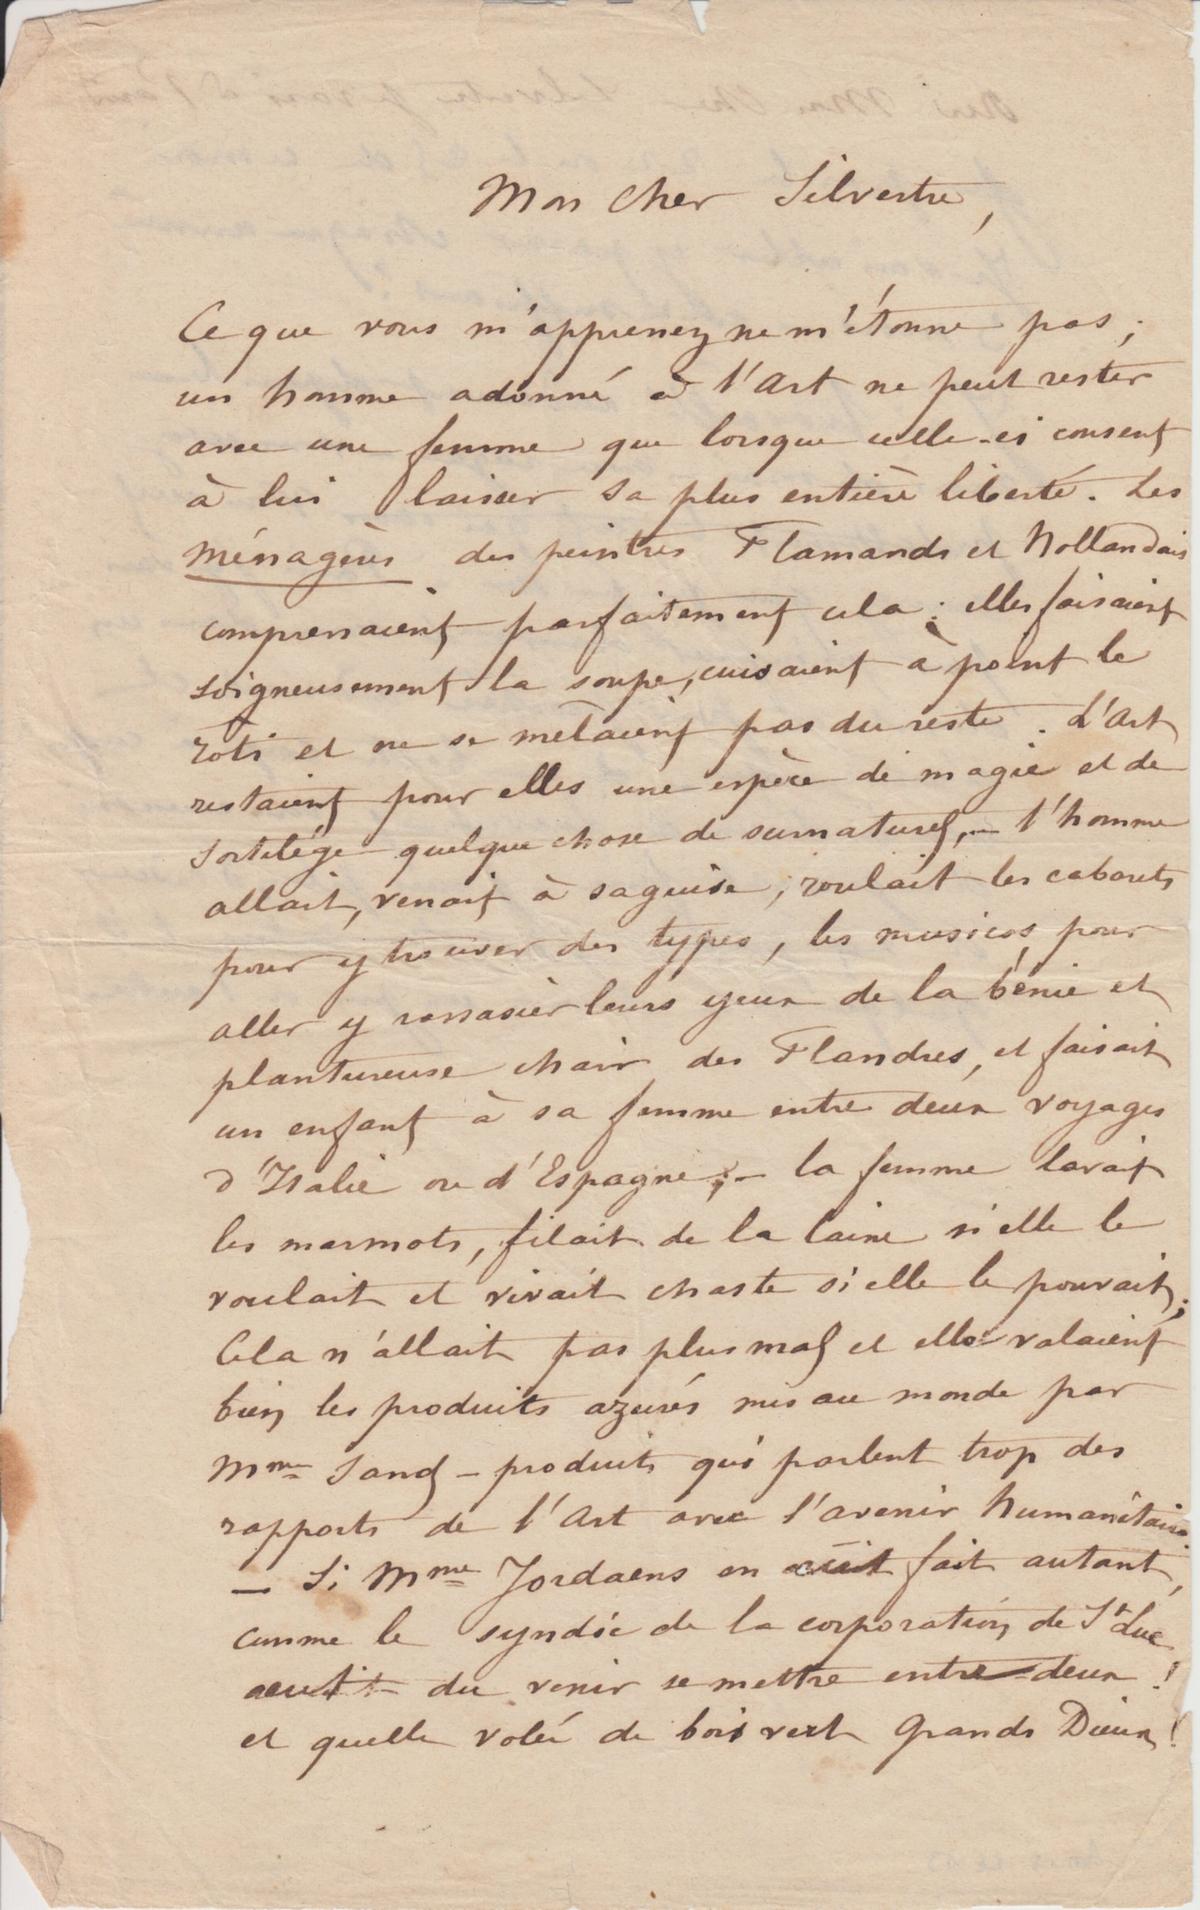 Mon cher Silvestre,
Ce que vous m'apprenez ne m'étonne pas ;
un homme adonné à l'Art ne peut rester
avec une femme que lorsque celle-ci consent
à lui laisser sa plus entière liberté. Les
Ménagères des peintres Flamands et Hollandais
comprenaient parfaitement cela : elles faisaient
soigneusement la soupe, cuisaient à point le
roti et ne se mêlaient pas du reste. L'Art
restaient pour elles une espèce de magie et de
sortilége quelque chose de surnaturel, — l'homme
allait, venait à sa guise, roulait les cabarets
pour y trouver des types, les musicos pour
aller y rassasier leurs yeux de la bénie et
plantureuse chair des Flandres, et faisait
un enfant à sa femme entre deux voyages
d'Italie ou d'Espagne ; — la femme lavait
les marmots, filait de la laine si elle le
voulait et vivait chaste si elle le pouvait ;
Cela n'allait pas plus mal et elles valaient
bien les produits azurés mis au monde par
Mme Sand — produits qui parlent trop des
rapports de l'Art avec l'avenir humanitaire.
— Si Mme Jordaens en fait autant,
comme le syndic de la corporation de St Luc
du venir se mettre entre deux !
et quelle volée de bois vert Grands Dieux !